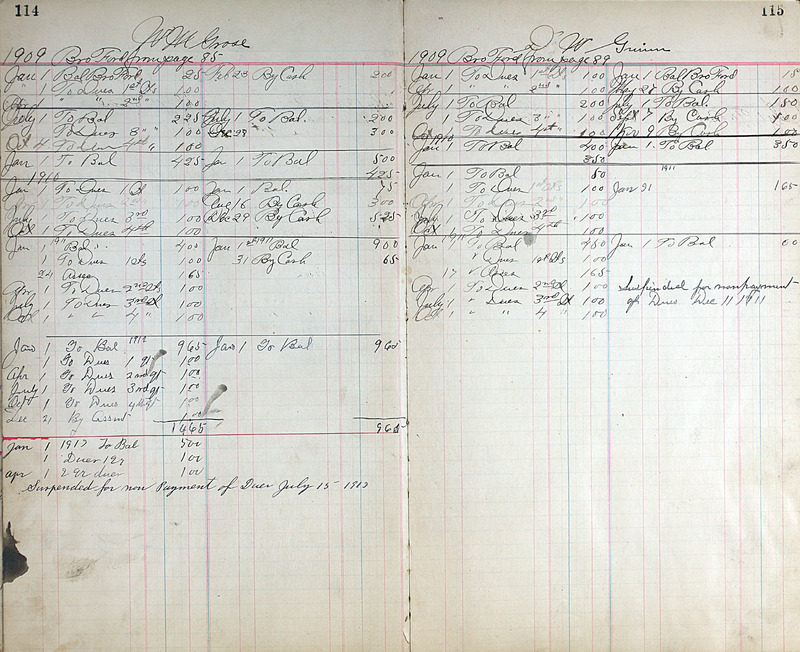 114
Wm Grose
1909 Bro Ford from page 85
Jan 1 Bal Bro Ford 25 Feb 23 By Cash 200
" 1 To Dues 1st Qts 100
Apr " " 2nd " 100
July 1 To Bal 225 July 1 To Bal. 200
" To Dues 3 " " 100 Dec 29 300
Oct 4 To Dues 4th " 100
Jan 1 To Bal 425 Ja 1 To Bal 500
1910 425
Jan 1 To Dues 1 Qt 100 Jan 1 Bal. 75
Apr 1 To Dues 2nd 100 Aug 16 By Cash 300
July 1 To Dues 3rd 100 Dec 29 By Cash 525
Oct 1 To Dues 4th 100
Jan 1911 Bal. 400 Jan 1st 1911 Bal 900
1 To Dues 1sts 100 31 By Cash 65
24 Asses 165
Apr 1 To Dues 2nd Qts 100
July 1 To Dues 3rd Qt 100
Oct 1 " " 4 " 100
1912
Jan 1 To Bal 965 Jan 1 To Bal 965
1 To Dues 1 qt 100
Apr 1 To Dues 2nd qt 100
July 1 To Dues 3rd qt 100
Oct 1 To Dues 4th qt 100
Dec 21 By Assmt 100
1465 965
Jan 1 1913 To Bal 500
1 Dues 1 qr 100
apr 1 2 qr dues 100
Suspended for non Payment of Dues July 15 - 1913
115
J. W Guinn
1909 Bro Ford from page 89
Jan 1 To Dues 1st Qts 100 Jan 1 Bal Bro Ford 15
Apr 1 " " 2nd " 100 May 27 By Cash 100
July 1 To Bal 200 July 1 To Bal. 150
1 To Dues 3 " " 100 Sept 1 By Cash 100
Oct To Dues 4th " 100 Nov 9 By Cash 100
1910
Jan 1 To Bal 400 Jan 1. To Bal 350
350
Jan 1 To Bal 50 1911
1 To Dues 1st Qts 100 Jan 31 165
Apr 1 To Dues 2nd " 100
July 1 To Dues 3rd " 100
Oct 1 To Dues 4th 100
Jan 1911 To Bal 450 Jan 1 To Bal 00
1 " Dues 1st Qts 100
17 " Asses 165
Apr 1 To Dues 2nd Qt 100 Suspended for nonpayment
July 1 " Dues 3rd Qt 100 of Dues Dec 11 1911
Oct 1 " " 4 " 100